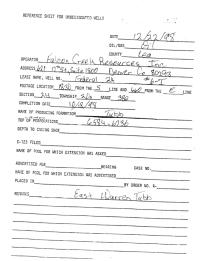 REFERENCE SHEET FOR UNDESIGNATED WELLS
DATE 12/22/98
OIL/GAS Oil
COUNTY Lea
OPERATOR Falcon Creek Resources Inc.
ADDRESS 621 17th St, Suite 1800 Denver Co
LEASE NAME, WELL NO. Federal 24
FOOTAGE LOCATION FROM THE S LINE AND FROM THE E LINE
SECTION 24 TOWNSHIP RANGE
COMPLETION DATE 10/18/98
NAME OF PRODUCING FORMATION Tubb
TOP OF PERFORATIONS
DEPTH TO CASING SHOE
C-123 FILED
NAME OF POOL FOR WHICH EXTENSION WAS ASKED
ADVERTISED FOR HEARING CASE NO.
NAME OF POOL FOR WHICH EXTENSION WAS ADVERTISED
PLACED IN BY ORDER NO. R-
REMARKS East Warren Tubb